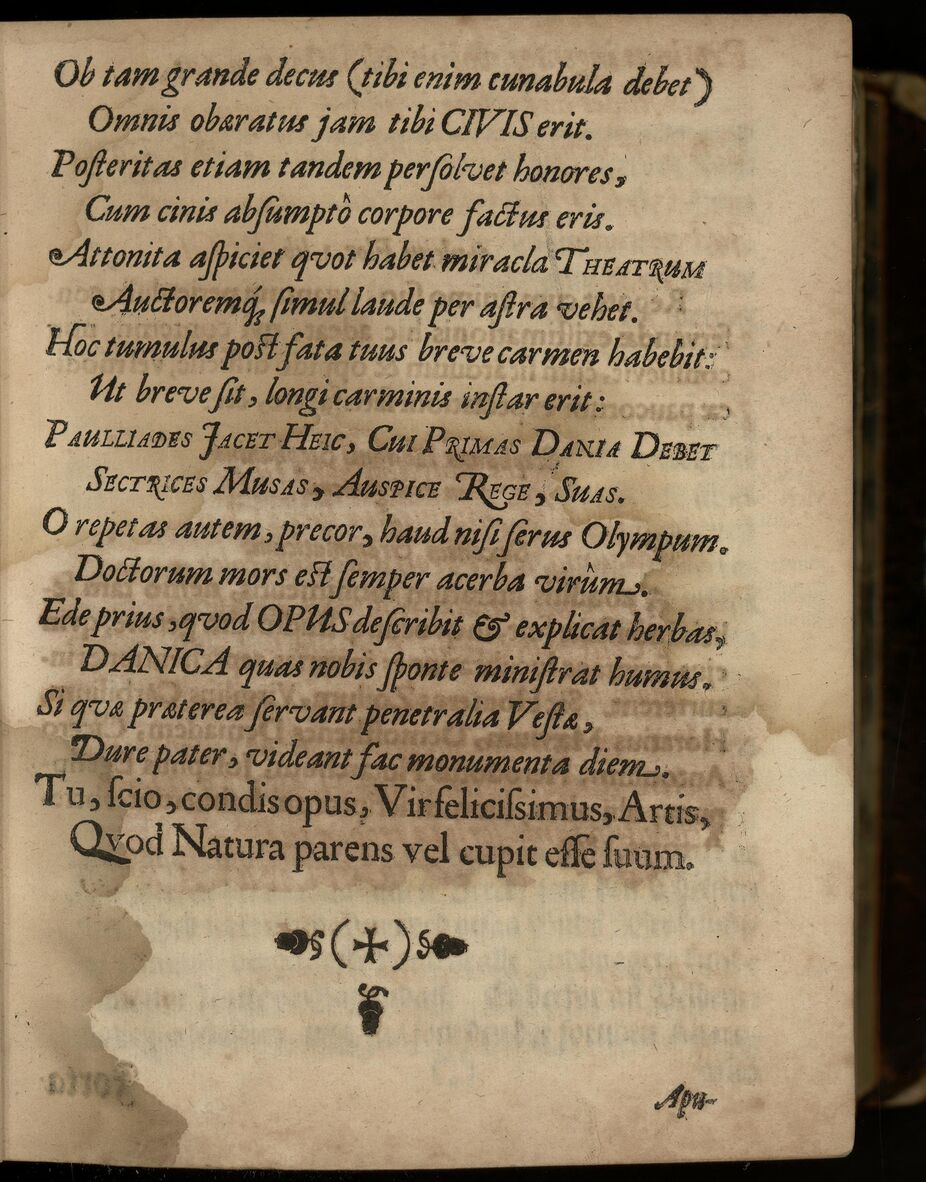 Ob tam grande decus (tibi enim cunabula debet)
Omnis obæratus jam tibi CIVIS erit.
Poſteritas etiam tandem perſolvet honores,
Cum cinis abſumptô corpore factus eris.
Attonita aſpiciet qvot habet miracla THEATRUM
Auctoremq́; ſimul laude per aſtra vehet.
Hoc tumulus poſt fata tuus breve carmen habebit:
Ut breve ſit, longi carminis inſtar erit:
PAULLIADES JACET HEIC, CUI PRIMAS DANIA DEBET
SECTRICES MUSAS, AUSPICE REGE, SUAS.
O repetas autem, precor, haud niſi ſerus Olympum.
Doctorum mors eſt ſemper acerba virûm.
Ede prius, qvod OPUS deſcribit & explicat herbas,
DANICA quas nobis ſponte miniſtrat humus.
Si qvæ præterea ſervant penetralia Veſtæ,
Dure pater, videant fac monumenta diem.
Tu, ſcio, condis opus, Vir feliciſsimus, Artis,
Qvod Natura parens vel cupit eſſe ſuum.
Apu-